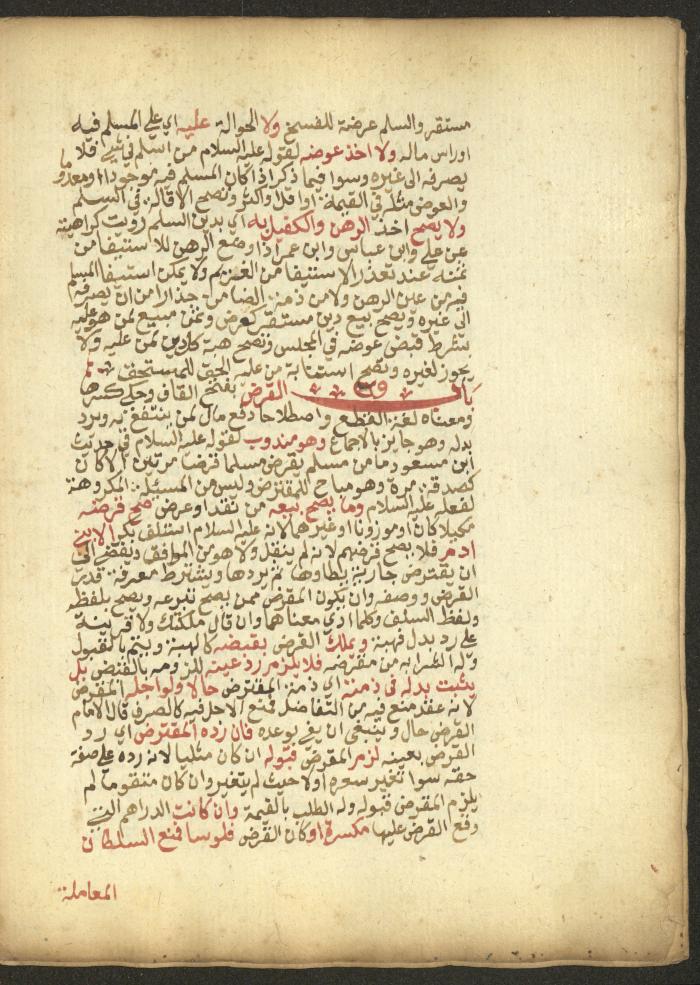 مستقر والسلم عرضة للفسخ ولا الحوالة عليه اي على المسلم فيه
او راس ماله ولا اخذ عوضه لقوله عليه السلام من اسلم في شي فلا
يصرفه الى غيره وسوا فيما ذكر اذا كان المسلم فيه موجودا او معدوما
والعوض مثله في القيمة او اقل او اكثر وتصح الاقالة في السلم
ولا يصح اخذ الرهن والكفيل به اي بدين السلم رويت كراهيته
عن علي وابن عباس وابن عمر اذ وضع الرهن للاستيفا من
ثمنه عند تعذر الاستيفا من الغريم ولا يمكن استيفا المسلم
فيه من عين الرهن ولا من ذمة الضامن حذارا من ان يصرفه
الى غيره ويصح بيع دين مستقر كقرض وثمن مبيع لمن هو عليه
بشرط قبض عوضه في المجلس وتصح هبة كل دين لمن عليه ولا
يجوز لغيره وتصح استنابة من عليه الحق للمستحق
باب القرض بفتح القاف وحكي كسرها
ومعناه لغة القطع واصطلاحا دفع مال لمن ينتفع به ويرد
بدله وهو جايز بالاجماع وهو مندوب لقوله عليه السلام في حديث
ابن مسعود ما من مسلم يقرض مسلما قرضا مرتين الا كان
كصدقة مرة وهو مباح للمقترض وليس من المسئلة المكروهة
لفعله عليه السلام وما يصح بيعه من نقد او عرض صح قرضه
مكيلا كان او موزونا او غيرهما لانه عليه السلام استلف بكرا الا بني
ادم فلا يصح قرضهم لانه لم ينقل ولا هو من المرافق ويفضي الى
ان يقترض جارية يطاوها ثم يردها ويشترط معرفة قدر
القرض ووصفه وان يكون المقرض ممن يصح تبرعه ويصح بلفظه
ولفظ السلف وكلما ادي معناهما وان قال ملكتك ولا قرينة
على رد بدل فهبة ويملك القرض بقبضه كالهبة ويتم بالقبول
وله الشرا به من مقرضه فلا يلزم رد عينه للزومه بالقبض بل
يثبت بدله في ذمته اي ذمة المقترض حالا ولو اجله المقرض
لانه عقد منع فيه من التفاضل فمنع الاجل فيه كالصرف قال الامام
القرض حال وينبغي ان يفي بوعده فان رده المقترض اي رد
القرض بعينه لزم المقرض قبوله ان كان مثليا لانه رده على صفة
حقه سوا تغير سعره او لا حيث لم يتغير وان كان متقوما لم
يلزم المقرض قبوله وله الطلب بالقيمة وان كانت الدراهم التي
وقع القرض عليها مكسرة او كان القرض فلوسا فمنع السلطان
المعاملة